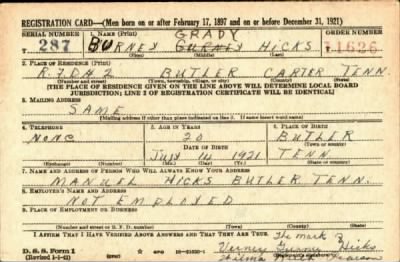 REGISTRATION CARD—(Men born on or after February 17, 1897 and on or before December 31, 1921)
SERIAL NUMBER 1. NAME (Print) GRADY ORDER NUMBER
T 287 BURNEY GURNEY HICKS 11626
(First) (Middle) (Last)
2. PLACE OF RESIDENCE (Print)
R.F.D.#2 BUTLER CARTER TENN
(Number and street) (Town, township, village, or city) (County) (State)
[THE PLACE OF RESIDENCE GIVEN ON THE LINE ABOVE WILL DETERMINE LOCAL BOARD
JURISDICTION; LINE 2 OF REGISTRATION CERTIFICATE WILL BE IDENTICAL]
3. MAILING ADDRESS
SAME
[Mailing address if other than place indicated on line 2. If same insert word same]
4. TELEPHONE 5. AGE IN YEARS 6. PLACE OF BIRTH
NONE 20 BUTLER
DATE OF BIRTH (Town or county)
JULY 14 1921 TENN.
(Exchange) (Number) (Mo.) (Day) (Yr.) (State or country)
7. NAME AND ADDRESS OF PERSON WHO WILL ALWAYS KNOW YOUR ADDRESS
MANUEL HICKS BUTLER TENN.
8. EMPLOYER'S NAME AND ADDRESS
NOT EMPLOYED
9. PLACE OF EMPLOYMENT OR BUSINESS
(Number and street or R. F. D. number) (Town) (County) (State)
I AFFIRM THAT I HAVE VERIFIED ABOVE ANSWERS AND THAT THEY ARE TRUE. The mark of
D. S. S. Form 1 Gurney Hicks
(Revised 1-1-42) (over)